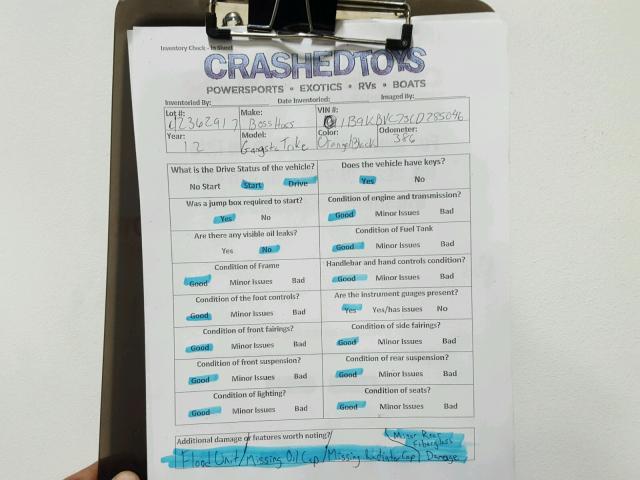 Inventory Check - In Sheet
CRASHEDTOYS
POWERSPORTS • EXOTICS • RVs • BOATS
Inventoried By: Date Inventoried: Imaged By:
Lot #: Make: VIN #:
42362917 Boss Hoss 1B9KBVC73CD285046
Year: Model: Color: Odometer:
12 Gangsta Trike Orange/Black 386
What is the Drive Status of the vehicle? Does the vehicle have keys?
No Start Start Drive Yes No
Was a jump box required to start? Condition of engine and transmission?
Yes No Good Minor Issues Bad
Are there any visible oil leaks? Condition of Fuel Tank
Yes No Good Minor Issues Bad
Condition of Frame Handlebar and hand controls condition?
Good Minor Issues Bad Good Minor Issues Bad
Condition of the foot controls? Are the instrument guages present?
Good Minor Issues Bad Yes Yes/has issues No
Condition of front fairings? Condition of side fairings?
Good Minor Issues Bad Good Minor Issues Bad
Condition of front suspension? Condition of rear suspension?
Good Minor Issues Bad Good Minor Issues Bad
Condition of lighting? Condition of seats?
Good Minor Issues Bad Good Minor Issues Bad
Additional damage or features worth noting?
Minor Rear
Fiberglass
Flood Unit/Missing Oil Cap/Missing Radiator Cap/Damage